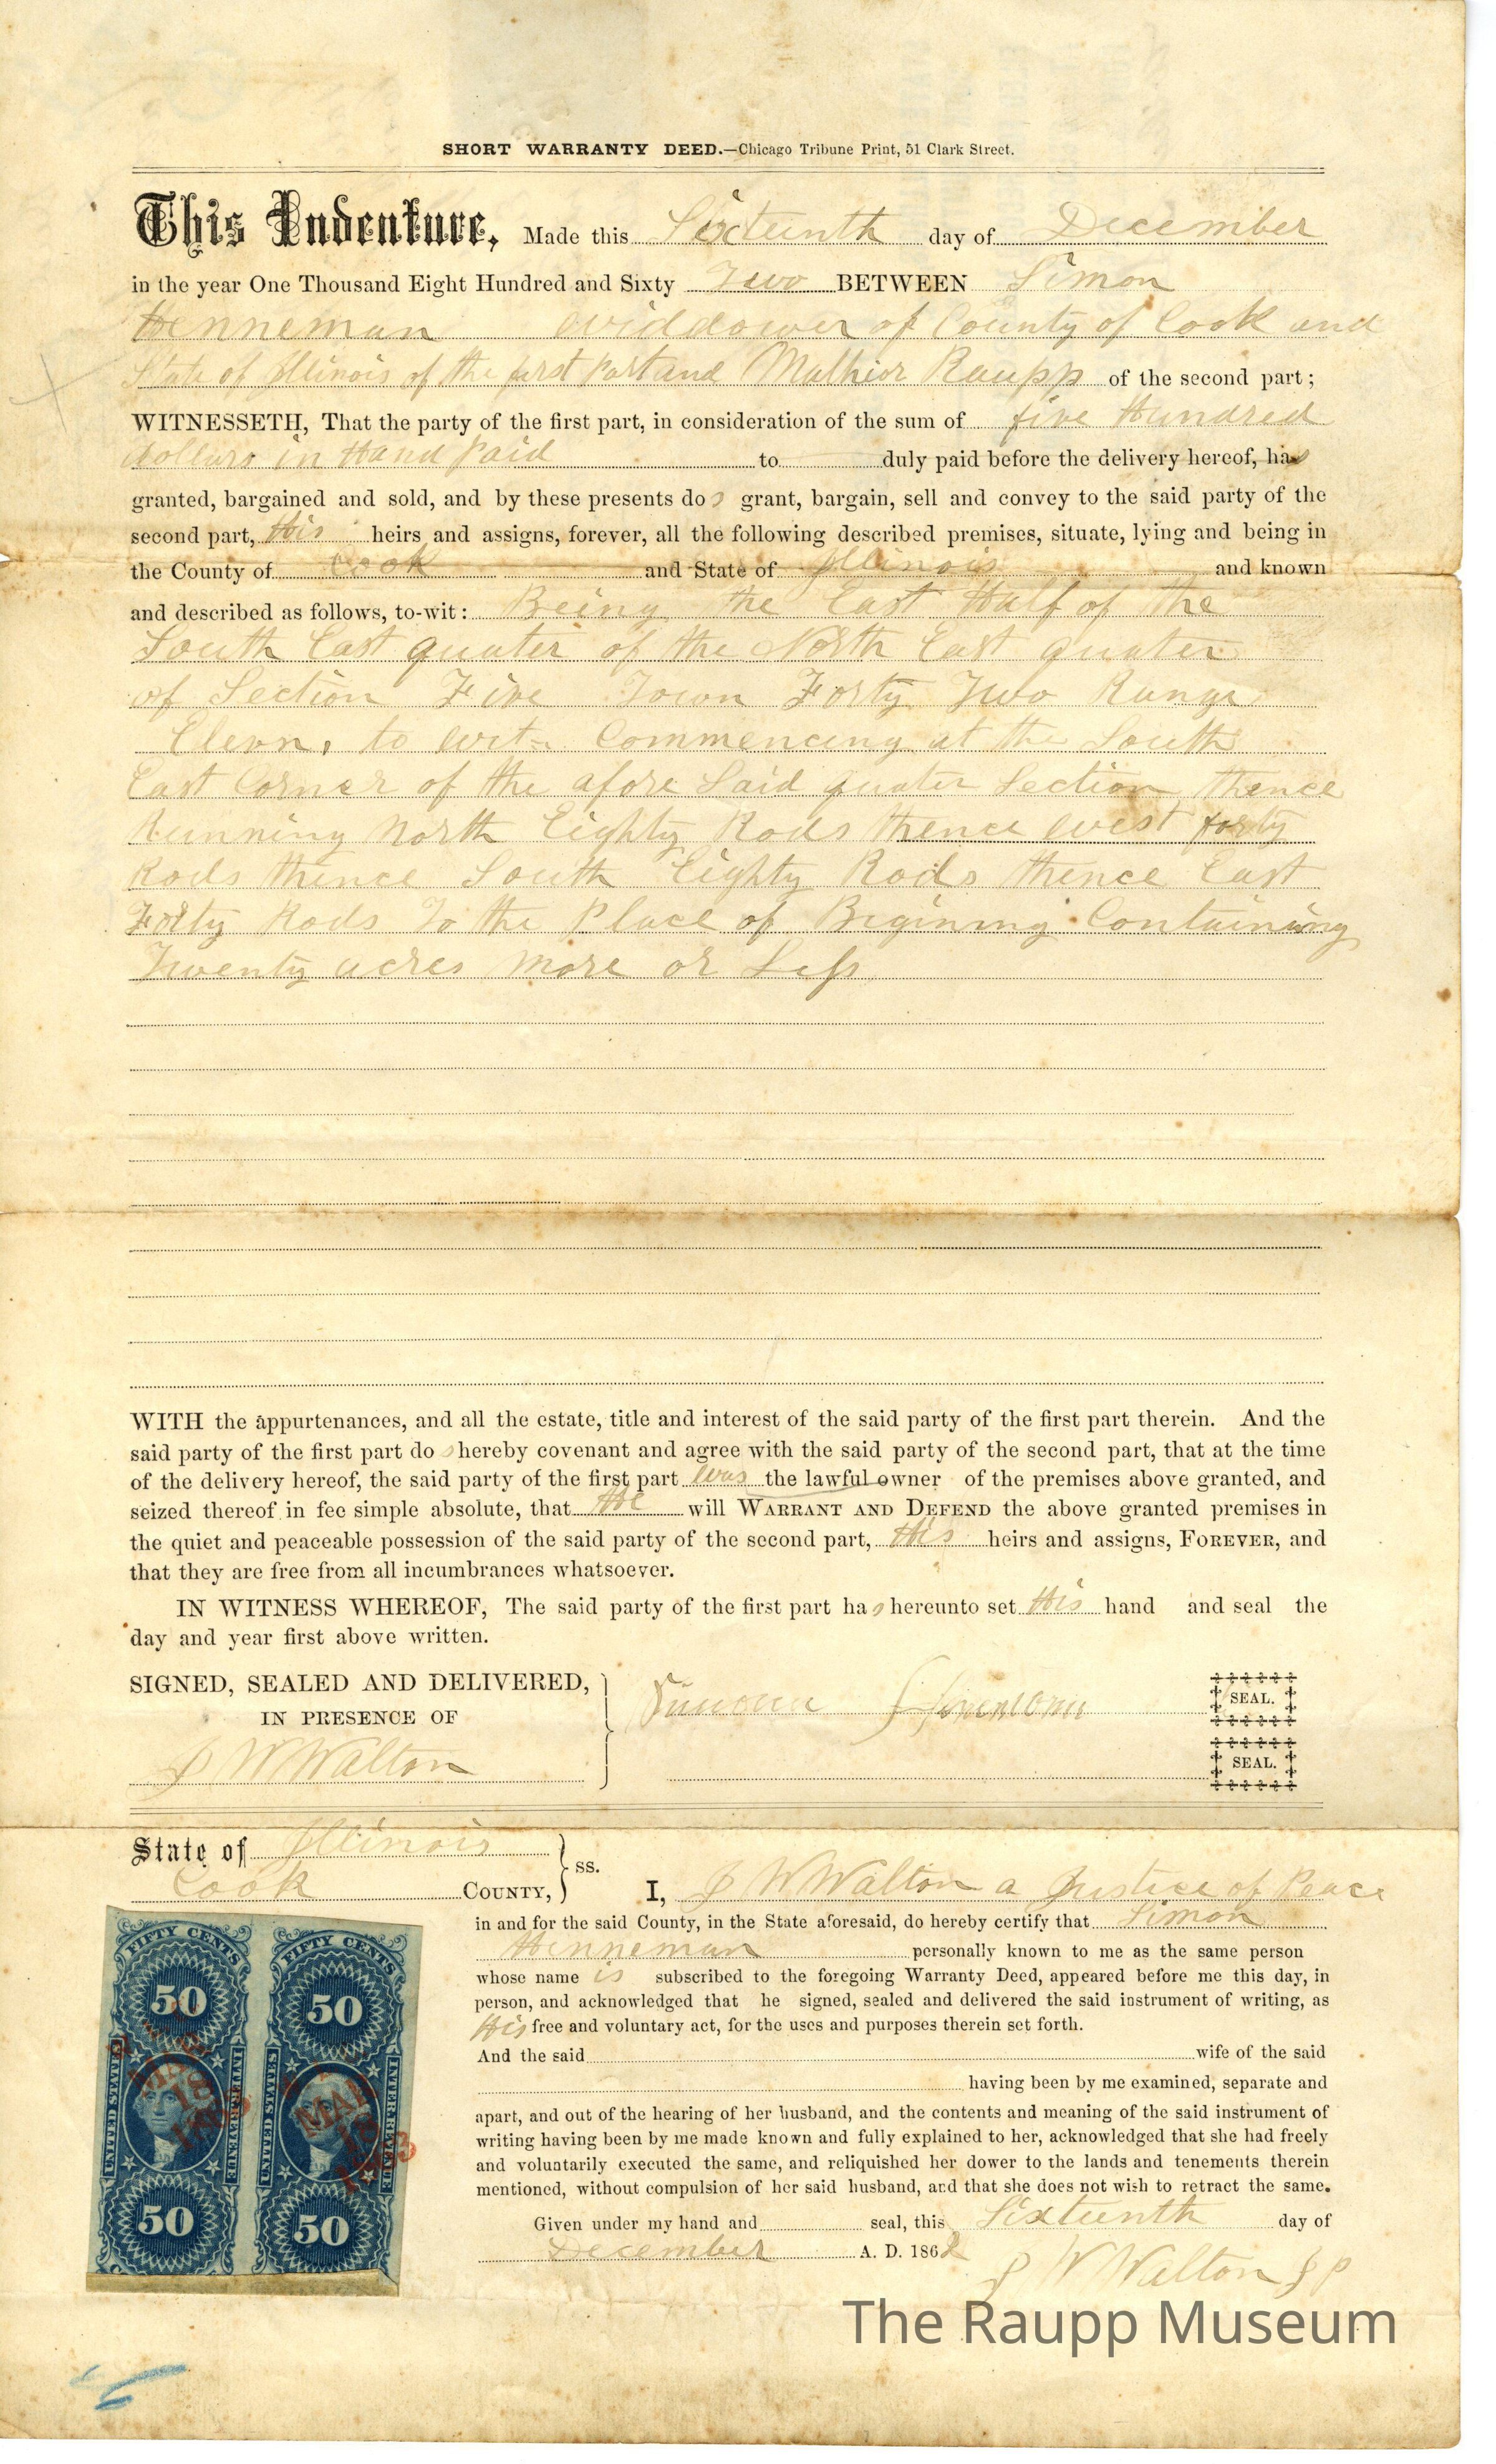 SHORT WARRANTY DEED.—Chicago Tribune Print, 51 Clark Street.
This Indenture, Made this Sixteenth day of December
in the year One Thousand Eight Hundred and Sixty Two BETWEEN Simon
Henneman Widdower of County of Cook and
State of Illinois of the first Part and Mathior Raupp of the second part;
WITNESSETH, That the party of the first part, in consideration of the sum of five Hundred
dollars in Hand Paid to duly paid before the delivery hereof, has
granted, bargained and sold, and by these presents dos grant, bargain, sell and convey to the said party of the
second part, His heirs and assigns, forever, all the following described premises, situate, lying and being in
the County of Cook and State of Illinois and known
and described as follows, to-wit: Being the East Half of the
South East quater of the North East quater
of Section Five Town Forty Two Range
Elevn, to wit- Commencing at the South
East Corner of the afore Said quater Section, thence
Running North Eighty Rods thence west forty
Rods thence South Eighty Rods thence East
Forty Rods To the Place of Begining Containing
Twenty acres more or Less
WITH the appurtenances, and all the estate, title and interest of the said party of the first part therein. And the
said party of the first part do s hereby covenant and agree with the said party of the second part, that at the time
of the delivery hereof, the said party of the first part was the lawful owner of the premises above granted, and
seized thereof in fee simple absolute, that He will WARRANT AND DEFEND the above granted premises in
the quiet and peaceable possession of the said party of the second part, His heirs and assigns, FOREVER, and
that they are free from all incumbrances whatsoever.
IN WITNESS WHEREOF, The said party of the first part has hereunto set His hand and seal the
day and year first above written.
SIGNED, SEALED AND DELIVERED,
IN PRESENCE OF
Simon Henneman SEAL.
J W Walton SEAL.
State of Illinois
Cook COUNTY, ss. I, J W Walton a Justice of Peace
in and for the said County, in the State aforesaid, do hereby certify that Simon
Henneman personally known to me as the same person
whose name is subscribed to the foregoing Warranty Deed, appeared before me this day, in
person, and acknowledged that he signed, sealed and delivered the said instrument of writing, as
His free and voluntary act, for the uses and purposes therein set forth.
And the said wife of the said
having been by me examined, separate and
apart, and out of the hearing of her husband, and the contents and meaning of the said instrument of
writing having been by me made known and fully explained to her, acknowledged that she had freely
and voluntarily executed the same, and reliquished her dower to the lands and tenements therein
mentioned, without compulsion of her said husband, and that she does not wish to retract the same.
Given under my hand and seal, this Sixteenth day of
December A. D. 1862
J W Walton J P
FIFTY CENTS
50
UNITED STATES
INTER. REVENUE
MAR
18
1863
50
FIFTY CENTS
50
UNITED STATES
INTER. REVENUE
MAR
18
1863
50
The Raupp Museum